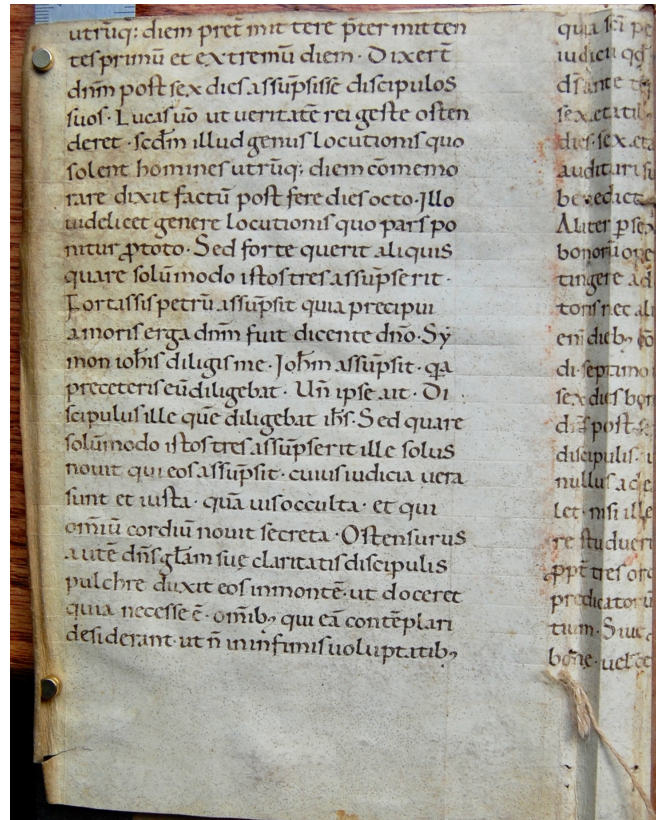 utrūq; diem pret̄mittere p̄termitten
tes primū et extremū diem · Dixer̄t
dn̄m post sex dies assūpsisse discipulos
suos · Lucas u̅o ut ueritatē rei geste osten
deret · scd̄m illud genus locutionis quo
solent homines utrūq; diem cōmemo
rare dixit factū post fere dies octo · Illo
uidelicet genere locutionis quo pars po
nitur ꝓ toto · Sed forte querit aliquis
quare solūmodo istos tres assūpserit ·
Fortassis petrū assūpsit quia precipui
amoris erga dn̄m fuit dicente dn̄o · Sy
mon ioh̄is diligis me · Ioh̄m assūpsit · q̄a
preceteris eū diligebat · Un̄ ipse ait · Di
scipulus ille quē diligebat ih̄s · Sed quare
solūmodo istos tres assūpserit ille solus
nouit qui eos assūpsit · cuius iudicia uera
sunt et iusta · quāuis occulta · et qui
om̄iū cordiū nouit secreta · Ostensurus
autē dn̄s gl̄am sue claritatis discipulis
pulchre duxit eos in montē · ut doceret
quia necesse ē · om̄ib; qui eā contēplari
desiderant · ut n̄ in infimis uoluptatib;
quia sc̄i
iudiciū
ds̄ ante
sex etatib
dies · sex
auditari
benedict
Aliter p sex
bonorū
tingere ad
toris nec
eni dieb;
di septimo
sex dies bon
post
discipulis ·
nullus
let · nisi ille
re studueri
ꝓpt̄ tres
predicatorū
tium · Siue
bone · uel